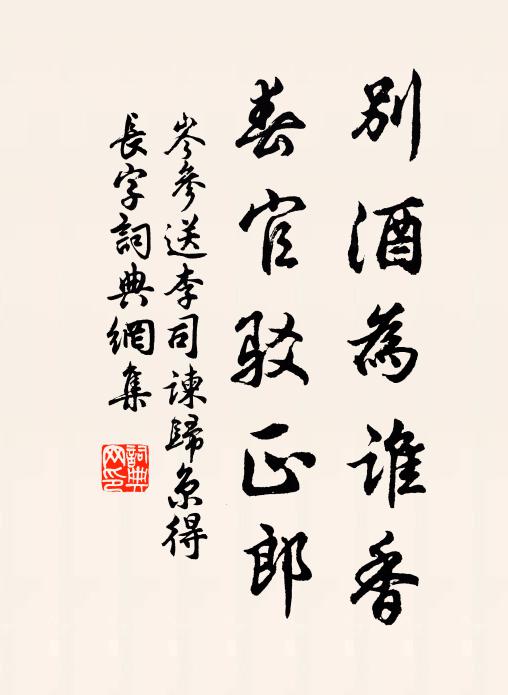 別酒為誰香
春官駁正郎
岑參送李司諫歸京得
長字詞典網集
詞典
网印